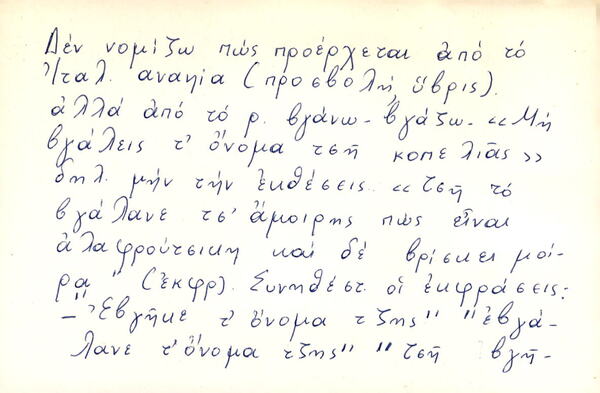 Δέν νομίζω πώς προέρχεται ἀπό τό
Ἰταλ. ανανία (προσβολή, ὕβρις).
ἀλλά ἀπό τό ρ. βγάνω - βγάζω - «Μή
βγάλεις τ' ὄνομα τσῆ κοπελιᾶς»
δηλ. μήν τήν ἐκθέσεις. «Τσῆ τό
βγάλανε τσ' ἄμοιρης πώς εἶναι
ἀλαφρούτσικη καί δέ βρίσκει μοί-
ρα" (ἐκφρ). Συνηθέστ. οἱ ἐκφράσεις:
- "Ἐβγῆκε τ' ὄνομα τζης" "ἐβγά-
λανε τ' ὄνομα τζης" "τσῆ βγῆ-